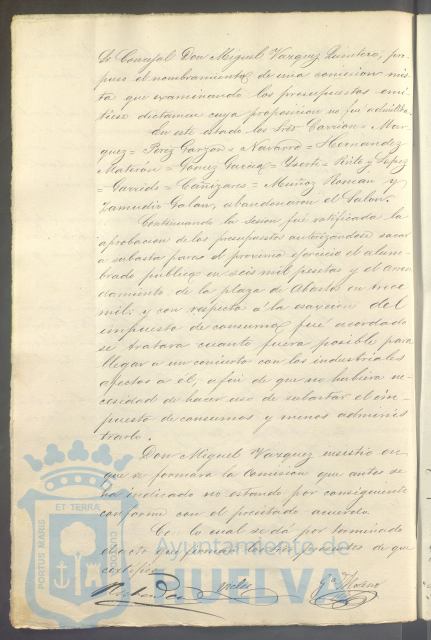 El Concejal Don Miguel Vazquez Quintero, pro-
puso el nombramiento de una comision mis-
ta que examinando los presupuestos emi-
tiese dictamen cuya proposicion no fué admitida.
En este estado los Sres Carrion = Mar-
quez = Perez Garzon = Navarro = Hernandez
Materon = Gomez Garcia = Ysorti = Rite y Lopez
= Garrido = Cañizares = Muñoz Roman y
Zamudio Galan, abandonaron el Salon.
Continuando la sesion fué ratificada la
aprobacion de los presupuestos autorizandose sacar
a subasta para el proximo ejercicio el alum-
brado publico en seis mil pesetas y el arren-
damiento de la plaza de Abastos en trece
mil; y con respecto á la exaccion del
impuesto de consumos fué acordado
se tratara cuanto fuera posible para
llegar a un concierto con los industriales
afectos a él, a fin de que no hubiera ne-
cesidad de hacer uso de subastar el im-
puesto de consumos y menos adminis
trarlo.
Don Miguel Vazquez insistió en
que se formara la Comision que antes se
ha indicado no estando por consiguiente
conforme con el precitado acuerdo.
Con lo cual se dá por terminado
el acto que firman los Sres de que
certifico.
Gª Moreno
PORTUS MARIS ET TERRÆ CUSTODIA
Ayuntamiento de
HUELVA